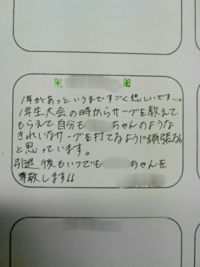 1年があっというまですごく悲しいです…。
1年生大会の時からサーブを教えて
もらえて自分も ちゃんのような
きれいなサーブを打てるように頑張ろう
と思っています。
引退後もいつでも ちゃんを
尊敬します!!